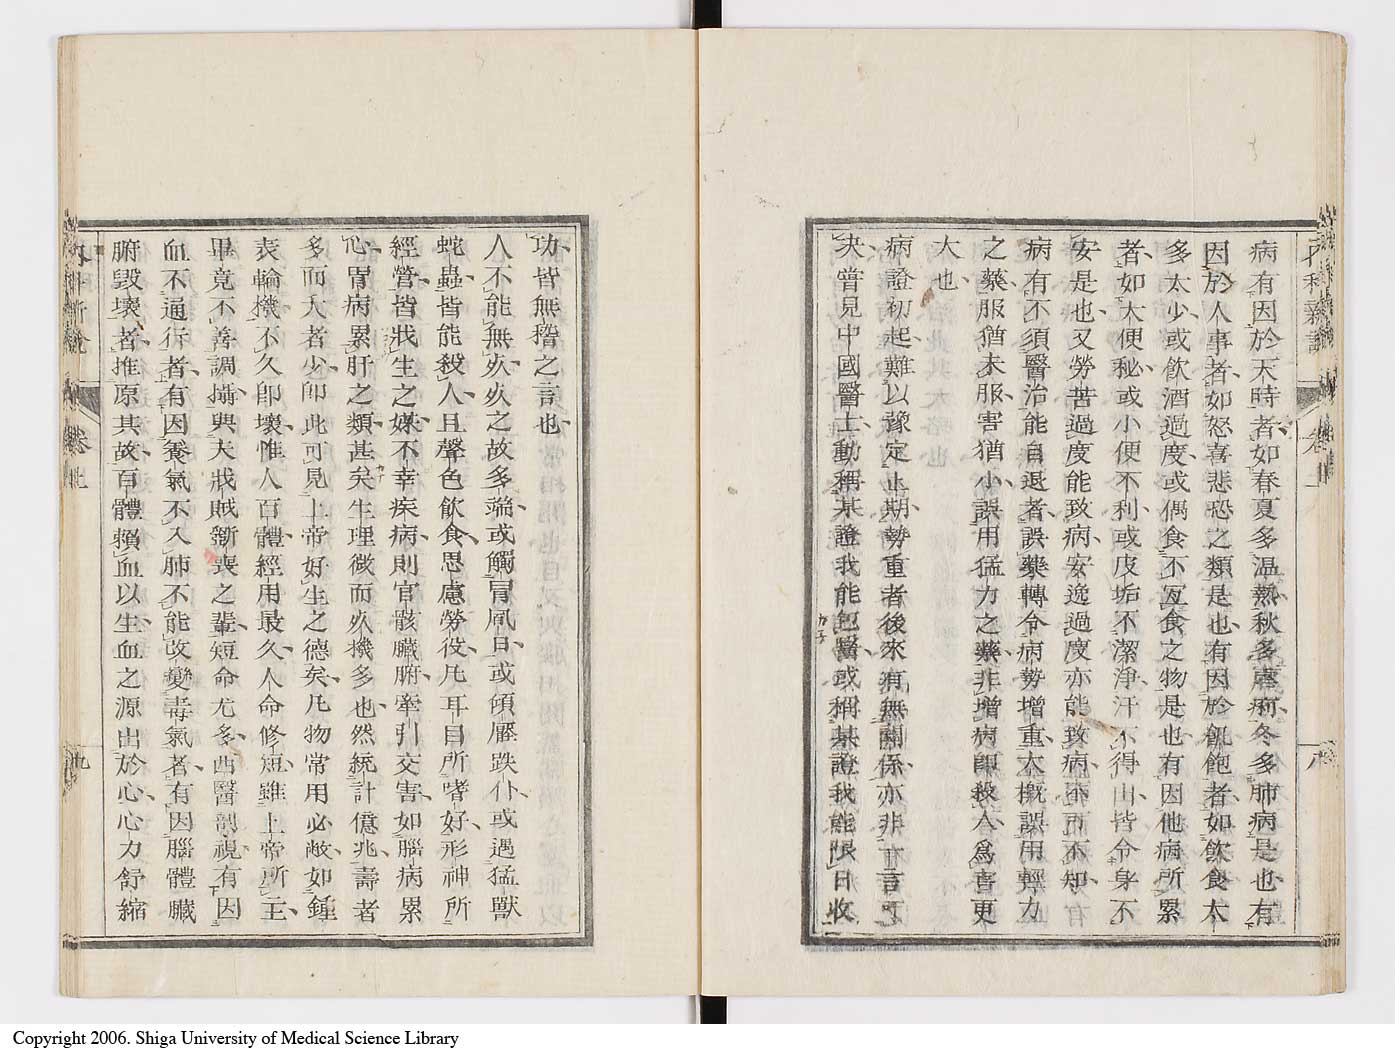 內科新說
卷上
八
病有因於天時者如春夏多溫熱秋多瘧痢冬多肺病是也有
因於人事者如怒喜悲恐之類是也有因於飢飽者如飲食太
多太少或飲酒過度或偶食不宜食之物是也有因他病所累
者如大便秘或小便不利或皮垢不潔淨汗不得出皆令身不
安是也又勞苦過度能致病安逸過度亦能致病不可不知
病有不須醫治能自退者誤藥轉令病勢增重大概誤用輕力
之藥服猶未服害猶小誤用猛力之藥非增病即殺人為害更
大也
病證初起難以豫定止期勢重者後來有無關係亦非一言可
決嘗見中國醫士動稱某證我能包醫或稱某證我能限日收
功皆無稽之言也
人不能無死死之故多端或觸冒風日或傾壓跌仆或遇猛獸
蛇蟲皆能殺人且聲色飲食思慮勞役凡耳目所嗜好形神所
經營皆戕生之媒不幸疾病則官骸臟腑牽引交害如腦病累
心胃病累肝之類甚矣生理微而死機多也然統計億兆壽者
多而夭者少即此可見上帝好生之德矣凡物常用必敝如鍾
表輪機不久即壞惟人百體經用最久人命修短雖上帝所主
畢竟不善調攝與夫戕賊斵喪之輩短命尤多西醫剖視有因
血不通行者有因養氣不入肺不能改變毒氣者有因腦體臟
腑毀壞者推原其故百體賴血以生血之源出於心心力舒縮
內科新說
卷上
九
Copyright 2006. Shiga University of Medical Science Library